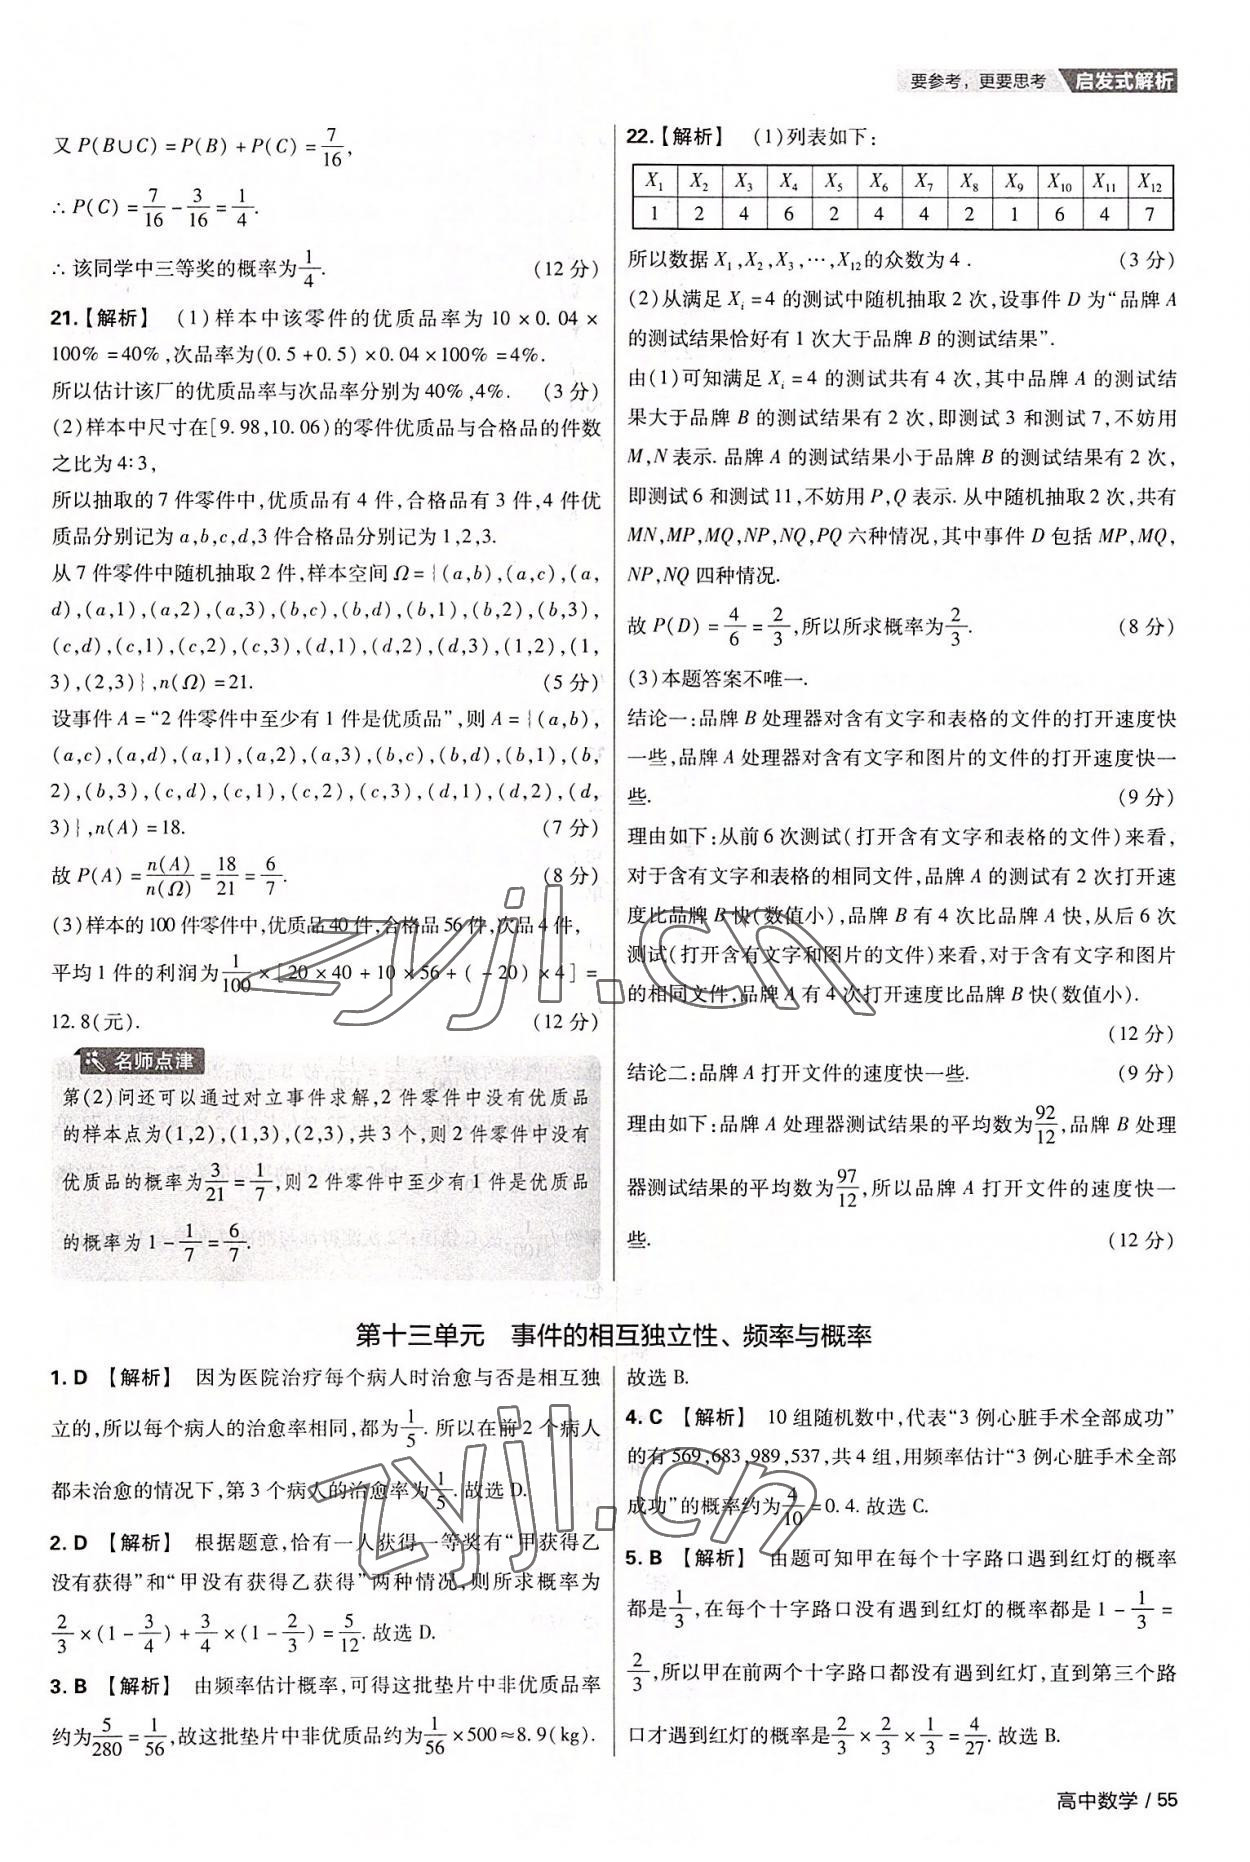 要参考，更要思考 启发式解析
又 P(B∪C) = P(B) + P(C) = 7/16,
∴ P(C) = 7/16 − 3/16 = 1/4.
∴ 该同学中三等奖的概率为1/4. (12 分)
21.【解析】 (1)样本中该零件的优质品率为 10 × 0.04 ×
100% = 40%,次品率为(0.5 + 0.5) × 0.04 × 100% = 4%.
所以估计该厂的优质品率与次品率分别为 40%,4%. (3 分)
(2)样本中尺寸在[9.98,10.06)的零件优质品与合格品的件数
之比为 4∶3,
所以抽取的 7 件零件中,优质品有 4 件,合格品有 3 件,4 件优
质品分别记为 a,b,c,d,3 件合格品分别记为 1,2,3.
从 7 件零件中随机抽取 2 件,样本空间 Ω = {(a,b),(a,c),(a,
d),(a,1),(a,2),(a,3),(b,c),(b,d),(b,1),(b,2),(b,3),
(c,d),(c,1),(c,2),(c,3),(d,1),(d,2),(d,3),(1,2),(1,
3),(2,3)},n(Ω) = 21. (5 分)
设事件 A = “2 件零件中至少有 1 件是优质品”,则 A = {(a,b),
(a,c),(a,d),(a,1),(a,2),(a,3),(b,c),(b,d),(b,1),(b,
2),(b,3),(c,d),(c,1),(c,2),(c,3),(d,1),(d,2),(d,
3)},n(A) = 18. (7 分)
故 P(A) = n(A)/n(Ω) = 18/21 = 6/7. (8 分)
(3)样本的 100 件零件中,优质品 40 件,合格品 56 件,次品 4 件,
平均 1 件的利润为 1/100 × [20 × 40 + 10 × 56 + (−20) × 4] =
12.8(元). (12 分)
名师点津
第(2)问还可以通过对立事件求解,2 件零件中没有优质品
的样本点为(1,2),(1,3),(2,3),共 3 个,则 2 件零件中没有
优质品的概率为 3/21 = 1/7,则 2 件零件中至少有 1 件是优质品
的概率为 1 − 1/7 = 6/7.
22.【解析】 (1)列表如下:
X₁ X₂ X₃ X₄ X₅ X₆ X₇ X₈ X₉ X₁₀ X₁₁ X₁₂
1 2 4 6 2 4 4 2 1 6 4 7
所以数据 X₁,X₂,X₃,…,X₁₂的众数为 4. (3 分)
(2)从满足 Xᵢ = 4 的测试中随机抽取 2 次,设事件 D 为“品牌 A
的测试结果恰好有 1 次大于品牌 B 的测试结果”.
由(1)可知满足 Xᵢ = 4 的测试共有 4 次,其中品牌 A 的测试结
果大于品牌 B 的测试结果有 2 次,即测试 3 和测试 7,不妨用
M,N 表示. 品牌 A 的测试结果小于品牌 B 的测试结果有 2 次,
即测试 6 和测试 11,不妨用 P,Q 表示. 从中随机抽取 2 次,共有
MN,MP,MQ,NP,NQ,PQ 六种情况,其中事件 D 包括 MP,MQ,
NP,NQ 四种情况.
故 P(D) = 4/6 = 2/3,所以所求概率为 2/3. (8 分)
(3)本题答案不唯一.
结论一:品牌 B 处理器对含有文字和表格的文件的打开速度快
一些,品牌 A 处理器对含有文字和图片的文件的打开速度快一
些. (9 分)
理由如下:从前 6 次测试(打开含有文字和表格的文件)来看,
对于含有文字和表格的相同文件,品牌 A 的测试有 2 次打开速
度比品牌 B 快(数值小),品牌 B 有 4 次比品牌 A 快,从后 6 次
测试(打开含有文字和图片的文件)来看,对于含有文字和图片
的相同文件,品牌 A 有 4 次打开速度比品牌 B 快(数值小).
(12 分)
结论二:品牌 A 打开文件的速度快一些. (9 分)
理由如下:品牌 A 处理器测试结果的平均数为 92/12,品牌 B 处理
器测试结果的平均数为 97/12,所以品牌 A 打开文件的速度快一
些. (12 分)
第十三单元 事件的相互独立性、频率与概率
1. D 【解析】 因为医院治疗每个病人时治愈与否是相互独
立的,所以每个病人的治愈率相同,都为 1/5. 所以在前 2 个病人
都未治愈的情况下,第 3 个病人的治愈率为 1/5. 故选 D.
2. D 【解析】 根据题意,恰有一人获得一等奖有“甲获得乙
没有获得”和“甲没有获得乙获得”两种情况,则所求概率为
2/3 × (1 − 3/4) + 3/4 × (1 − 2/3) = 5/12. 故选 D.
3. B 【解析】 由频率估计概率,可得这批垫片中非优质品率
约为 5/280 = 1/56,故这批垫片中非优质品约为 1/56 × 500 ≈ 8.9(kg).
故选 B.
4. C 【解析】 10 组随机数中,代表“3 例心脏手术全部成功”
的有 569,683,989,537,共 4 组,用频率估计“3 例心脏手术全部
成功”的概率约为 4/10 = 0.4. 故选 C.
5. B 【解析】 由题可知甲在每个十字路口遇到红灯的概率
都是 1/3,在每个十字路口没有遇到红灯的概率都是 1 − 1/3 =
2/3,所以甲在前两个十字路口都没有遇到红灯,直到第三个路
口才遇到红灯的概率是 2/3 × 2/3 × 1/3 = 4/27. 故选 B.
高中数学 / 55
zyjl.cn
zyjl.cn